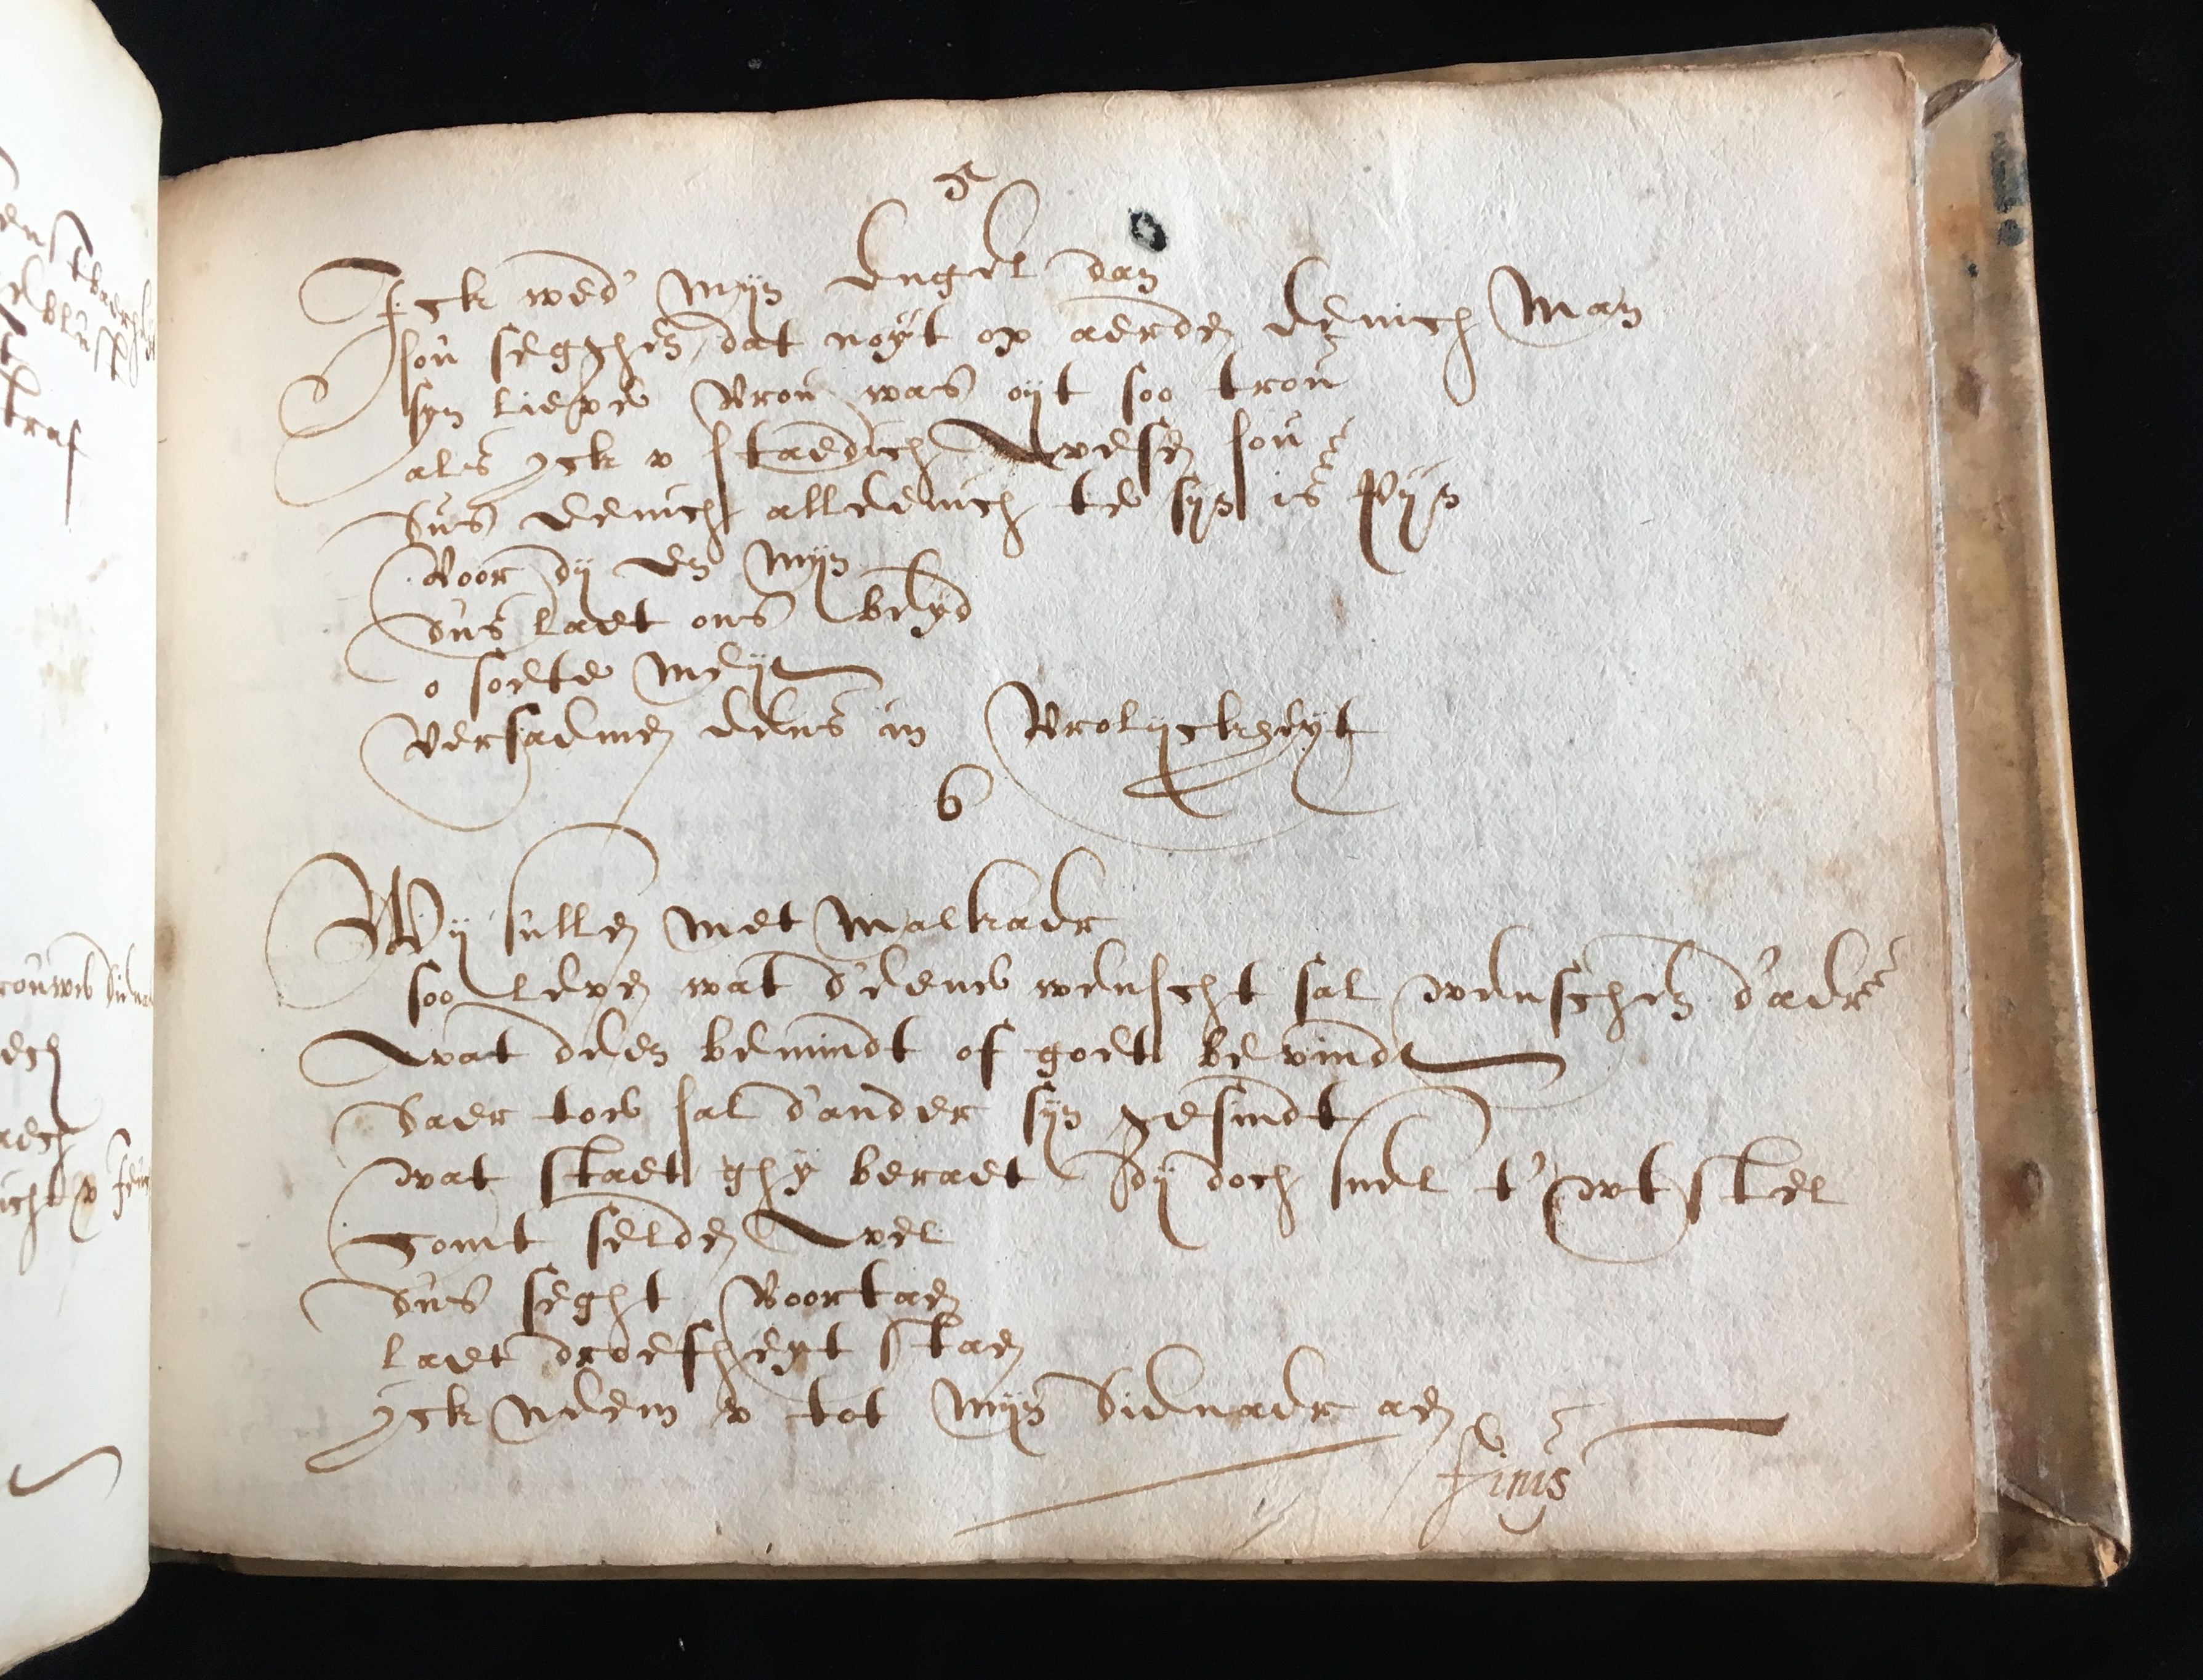 5
Ick wed' mijn engel dan
sou segghen dat noÿt op aerden eenich Man
syn liefve Vrou was oijt soo trou
als yck v staedich Wesen sou
Dus eenich alleenich te sijn is Pÿn
Voor dij en mijn
Dus laet ons blyd
o soete meijt
Versaemen eens in Vrolijckheyt
6
Wij sullen met Malkaer
soo leven wat d'eene wenscht sal wenschen d'aer
Wat deen bemindt of goet bevindt
Daer toe sal d'ander syn gesindt
wat staet ghy beraet dij doch snel t' wtstel
Comt selden Wel
Dus seght Voortaen
laet droefheyt staen
yck neem v tot mijn dienaer aen
finis